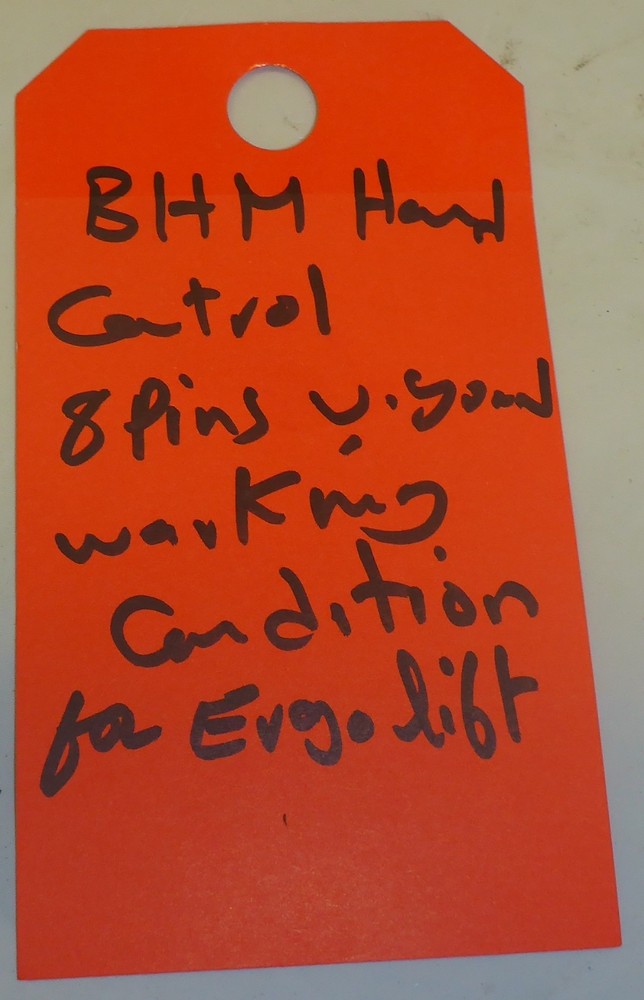 BHM Hand
Control
8 Pins v. good
working
Condition
for Ergolift